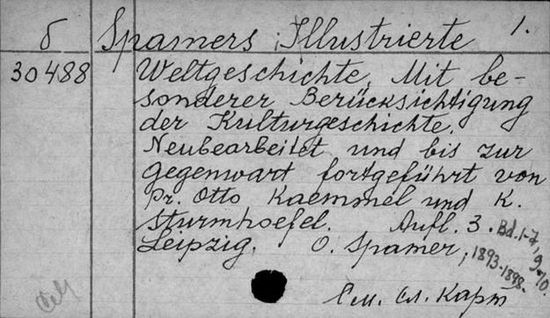 б Spamers Illustrierte 1.
30488 Weltgeschichte. Mit be-
sonderer Berücksichtigung
der Kulturgeschichte.
Neubearbeitet und bis zur
Gegenwart fortgeführt von
Dr. Otto Kaemmel und K.
Sturmhoefel. Aufl. 3. Bd. 1-7, 9-10.
Leipzig. O. Spamer, 1893-1898.
См. сл. карт